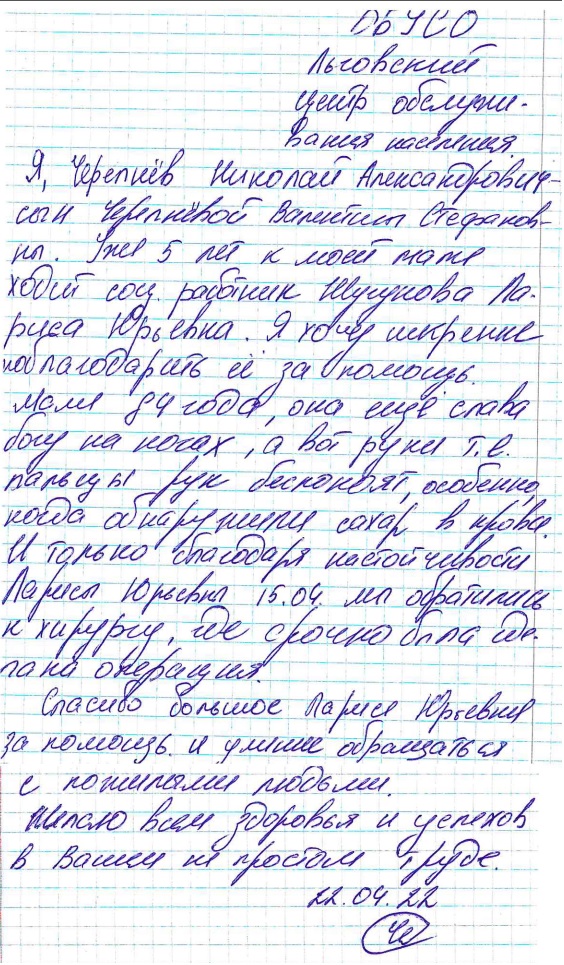 ОБУСО
Льговский
центр обслужи-
вания населения.
Я, Черепнёв Николай Александрович-
сын Черепнёвой Валентины Стефанов-
ны. Уже 5 лет к моей маме
ходит соц. работник Шугунова Ла-
риса Юрьевна. Я хочу искренне
поблагодарить её за помощь.
Маме 84 года, она ещё слава
богу на ногах, а вот руки т.е.
пальцы рук беспокоят, особенно,
когда обнаружили сахар в крови.
И только благодаря настойчивости
Ларисы Юрьевны 15.04. мы обратились
к хирургу, где срочно была сде-
лана операция.
Спасибо большое Ларисе Юрьевне
за помощь и умение обращаться
с пожилыми людьми.
Желаю всем здоровья и успехов
в Вашем не простом труде.
22.04.22
Че